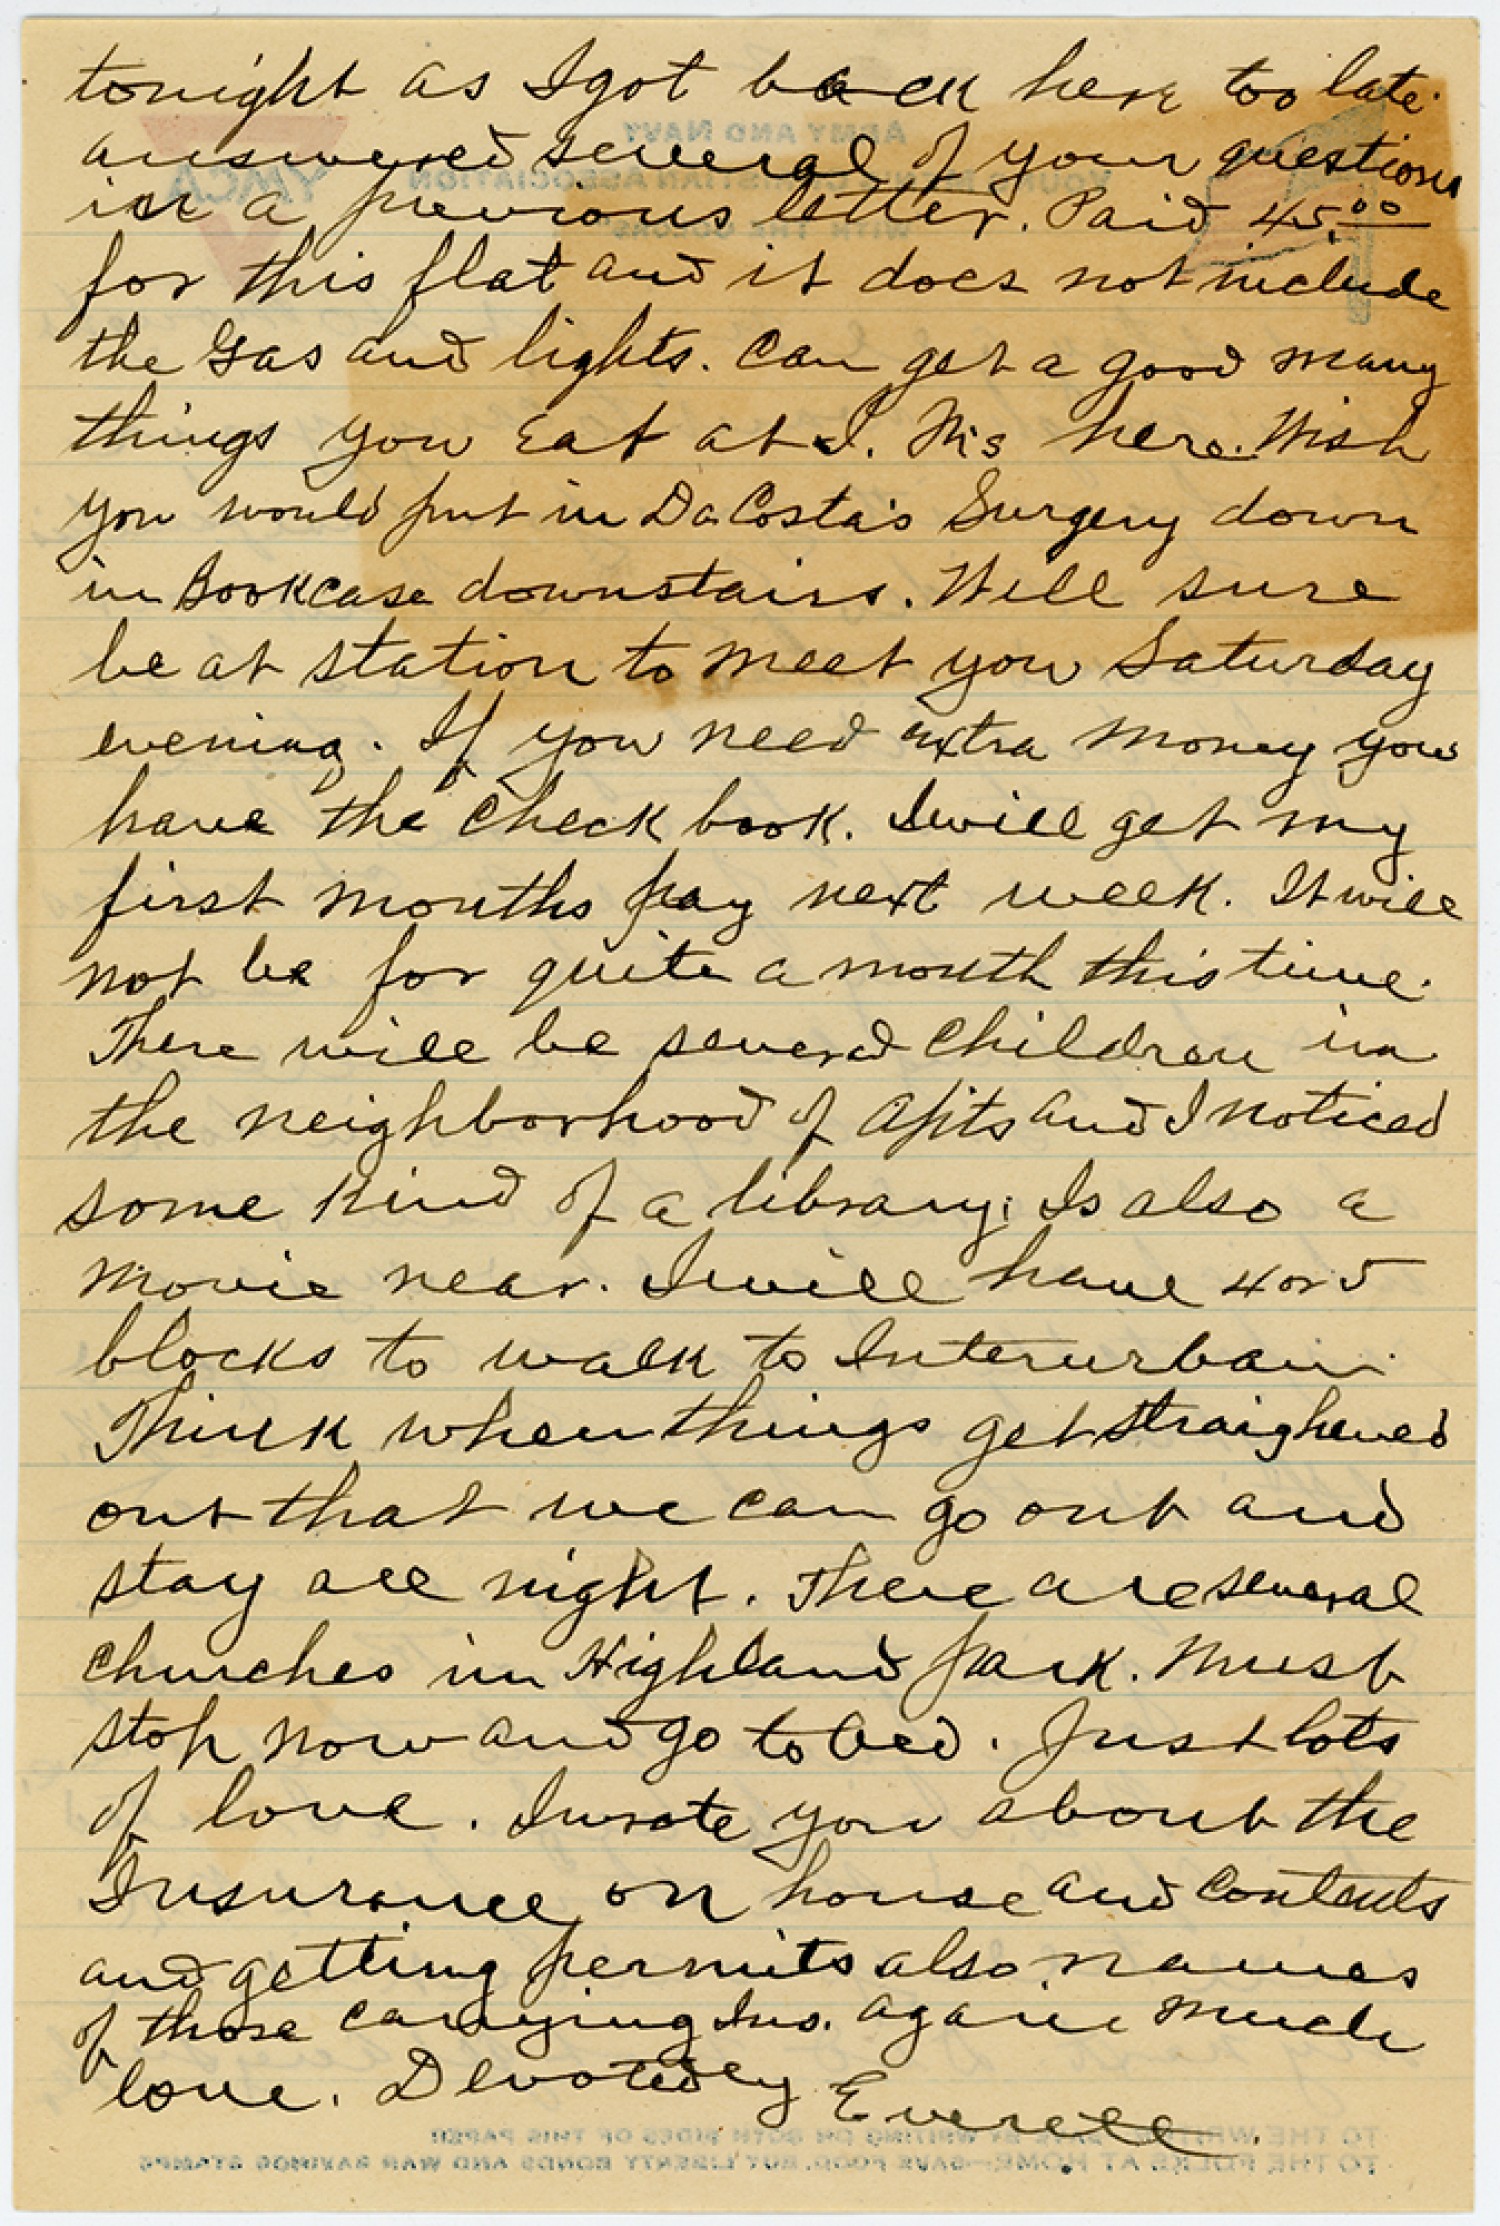 tonight as I got back here too late.
answered several of your questions
in a previous letter. Paid 45.00
for this flat and it does not include
the Gas and lights. Can get a good many
things you eat at Q. M's here. Wish
you would put in DaCosta's Surgery down
in Bookcase downstairs. Will sure
be at station to meet you Saturday
evening. If you need extra money you
have the check book. I will get my
first months pay next week. It will
not be for quite a month this time.
There will be several children in
the neighborhood of Apts and I noticed
some kind of a library; Is also a
movie near. I will have 4 or 5
blocks to walk to Interurban.
Think when things get straighened
out that we can go out and
stay all night. There are several
churches in Highland Park. Must
stop now and go to bed. Just lots
of love. I wrote you about the
Insurance on house and contents
and getting permits also names
of those carrying Ins. again much
love. Devotedly Everett.
ARMY AND NAVY
YOUNG MEN'S CHRISTIAN ASSOCIATION
"WITH THE COLORS"
YMCA
TO THE WRITER: SAVE BY WRITING ON BOTH SIDES OF THIS PAPER
TO THE FOLKS AT HOME—SAVE FOOD, BUY LIBERTY BONDS AND WAR SAVINGS STAMPS